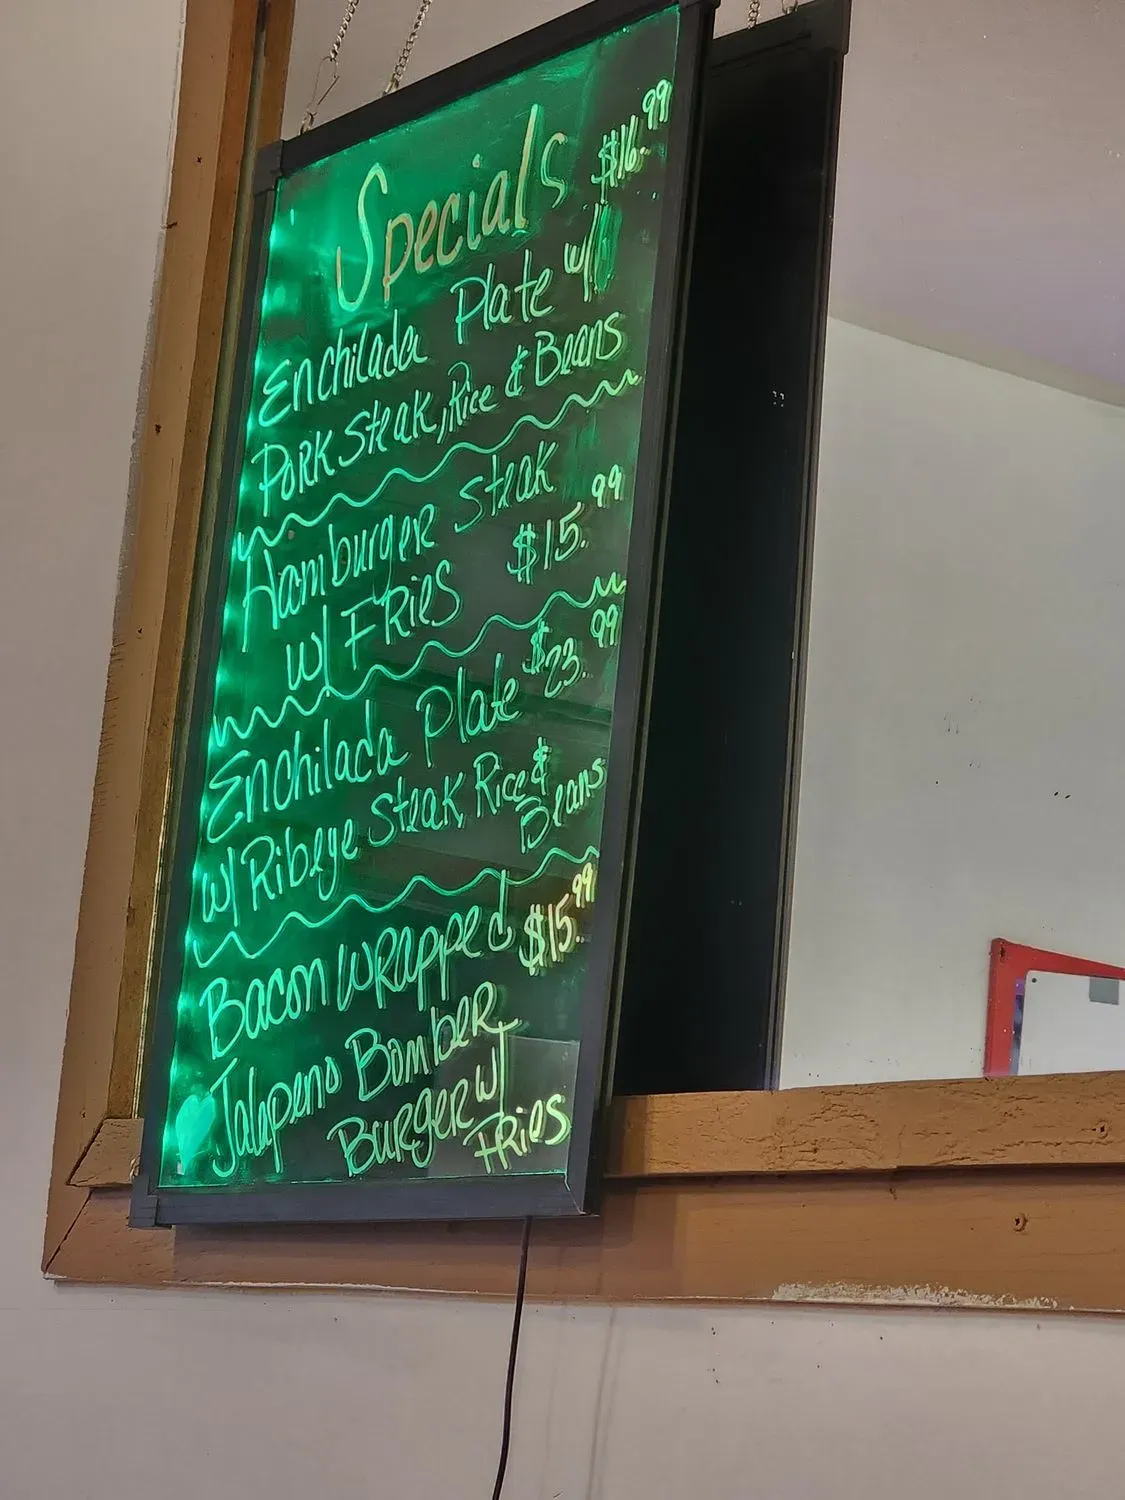 Specials $16.99
Enchilada Plate w/
Pork Steak, Rice & Beans
Hamburger Steak
w/ Fries $15.99
Enchilada Plate $23.99
w/ Ribeye Steak, Rice &
Beans
Bacon Wrapped $15.99
Jalapeno Bomber
Burger w/
Fries